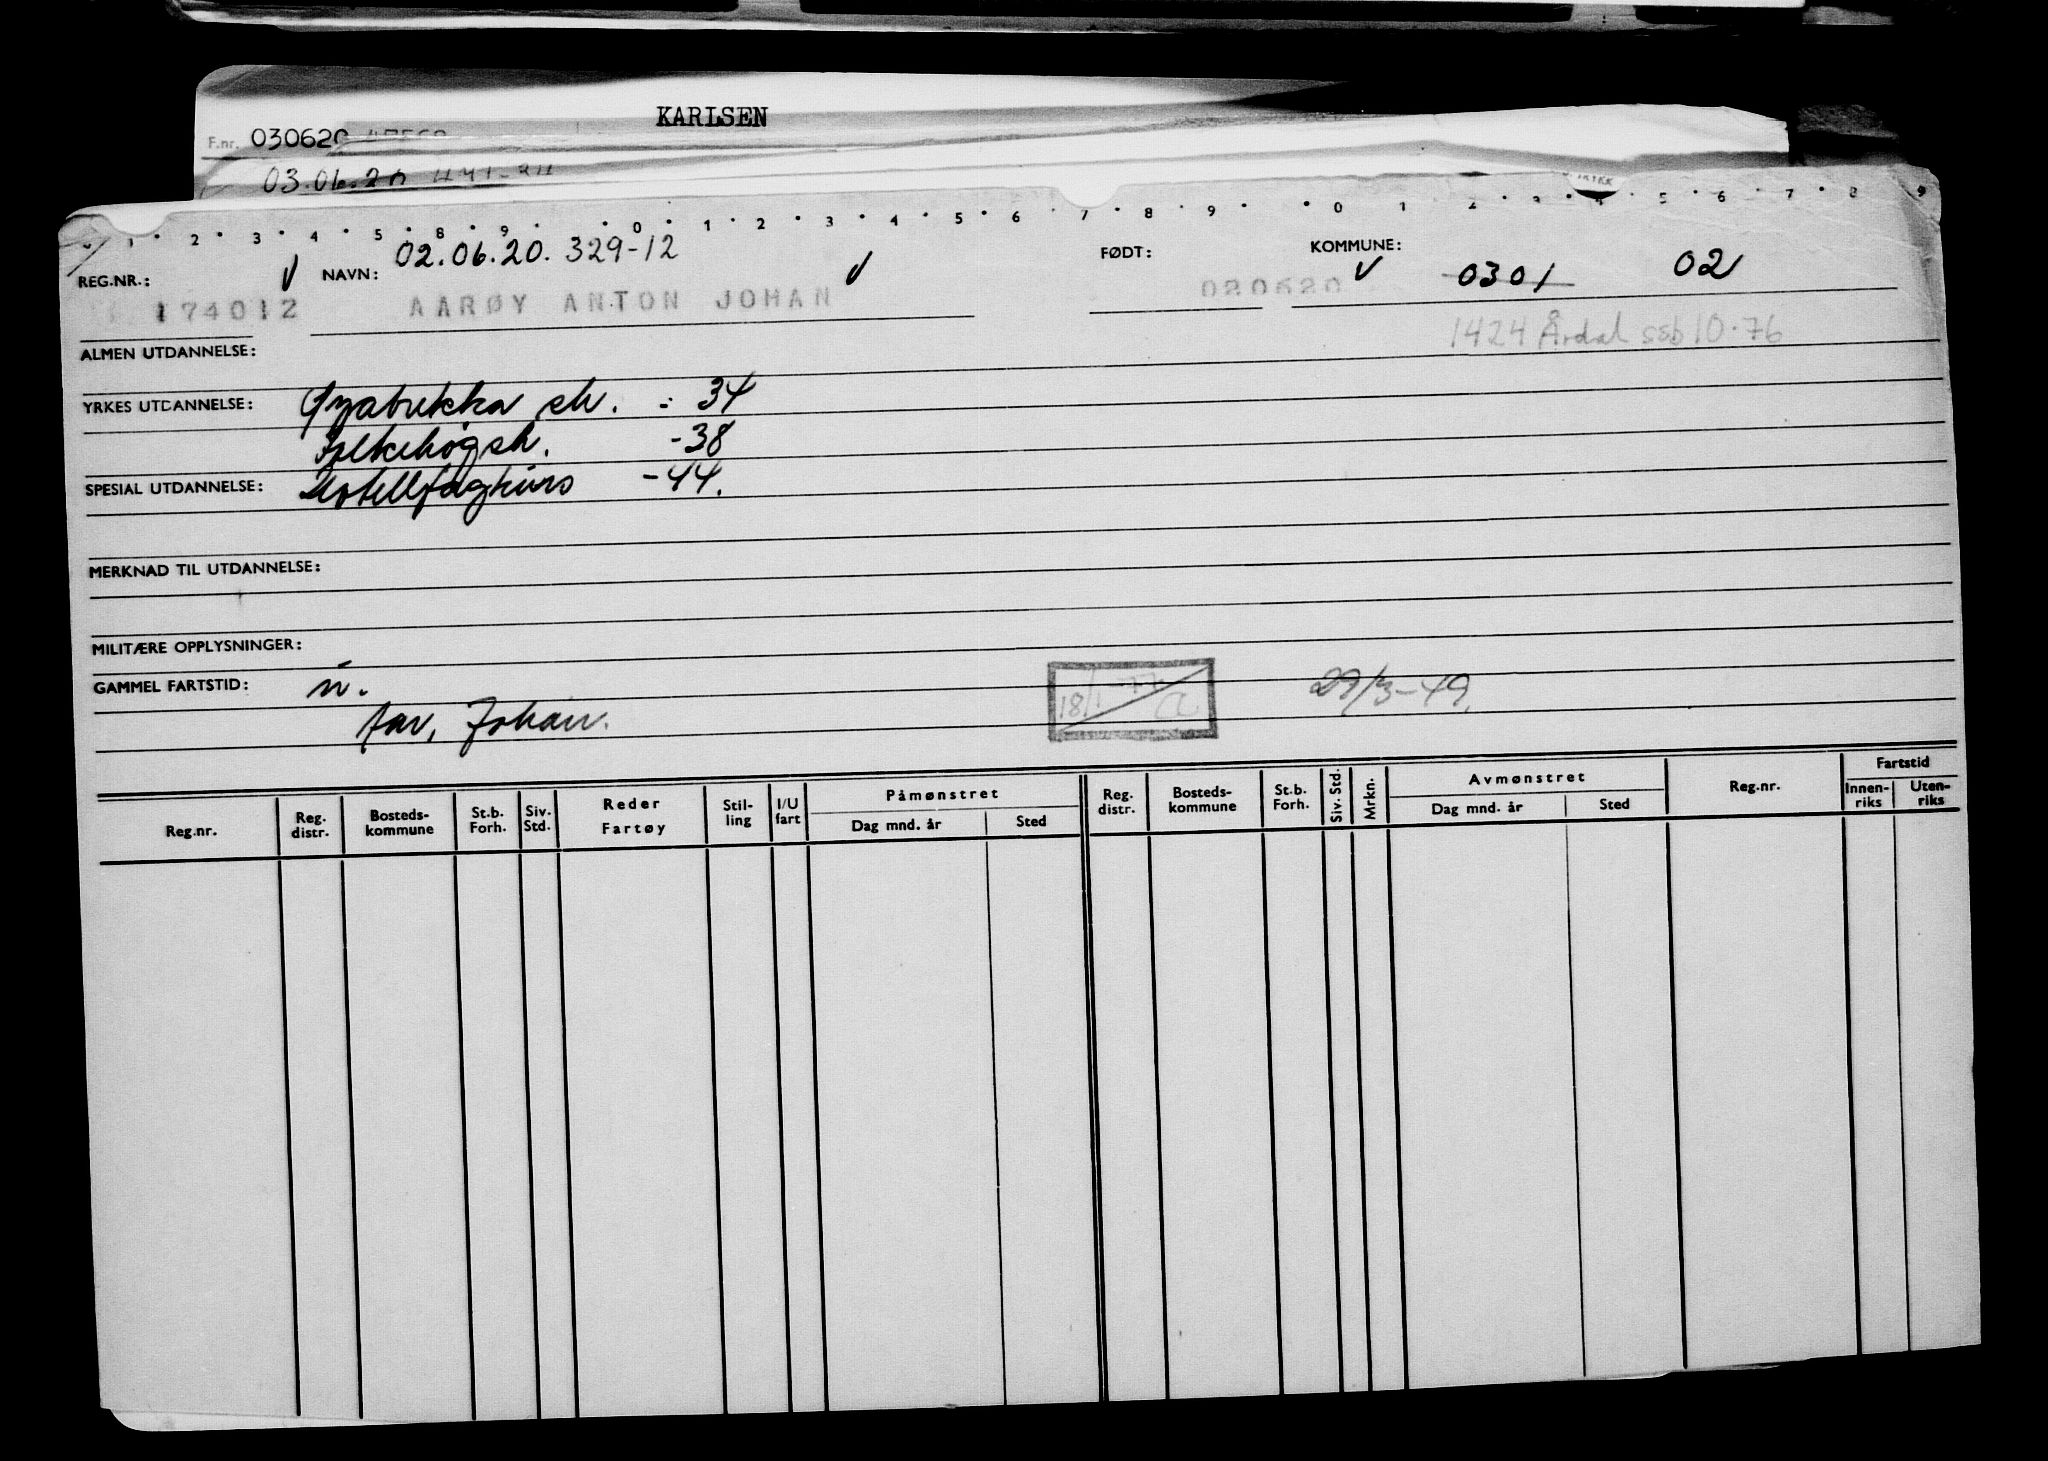 KARLSEN
F.nr. 030620
03.06.20
1 2 3 4 5 8 9 0 1 2 3 4 5 6 7 8 9 0 1 2 3 4 5 6 7 8 9
REG.NR.: NAVN: 02.06.20. 329-12 FØDT: KOMMUNE: 0301 02
174012 AARØY ANTON JOHAN 020620
1424 Årdal ssb 10-76
ALMEN UTDANNELSE:
YRKES UTDANNELSE: sk. : 34
Folkehøgsk. -38
SPESIAL UTDANNELSE: Hotellfagkurs -44.
MERKNAD TIL UTDANNELSE:
MILITÆRE OPPLYSNINGER:
GAMMEL FARTSTID: n. 18/1-77 29/3-49.
far, Johan.
Reg.nr. Reg. distr. Bosteds-kommune St.b. Forh. Siv. Std. Reder Fartøy Stil-ling I/U fart Påmønstret Dag mnd. år Sted Reg. distr. Bosteds-kommune St.b. Forh. Siv. Std. Mrkn. Avmønstret Dag mnd. år Sted Reg.nr. Fartstid Innen-riks Uten-riks